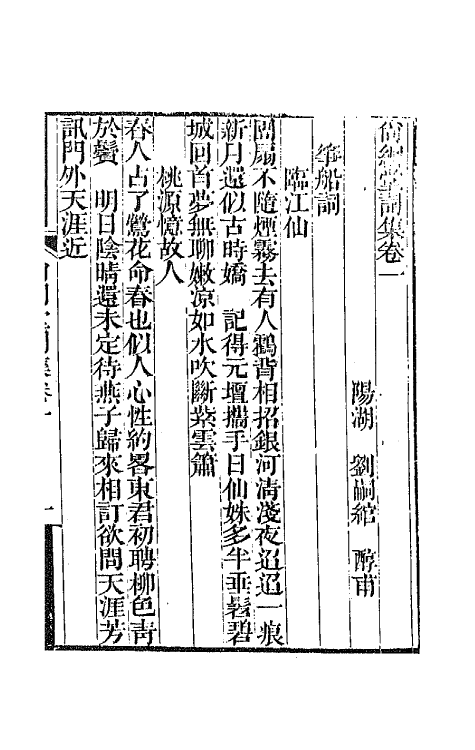 尙絅堂詞集卷一
陽湖　劉嗣綰　醇甫
箏船詞
臨江仙
團扇不隨煙霧去有人鶴背相招銀河淸淺夜迢迢一痕
新月還似古時嬌　記得元壇攜手日仙妹多半垂髫碧
城回首夢無聊嫩凉如水吹斷紫雲簫
桃源憶故人
春人占了鶯花命春也似人心性約畧東君初聘柳色靑
於鬢　明日陰晴還未定待燕子歸來相訂欲問天涯芳
訊門外天涯近